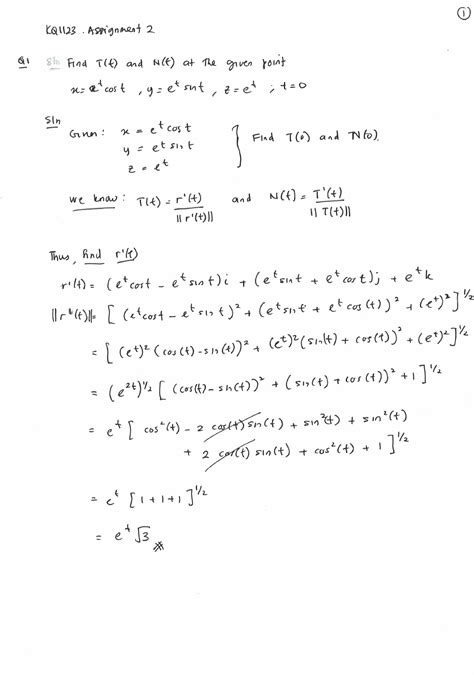 ①
KQ1123. Assignment 2
Q1 Find T(t) and N(t) at the given point
x = e^t cos t , y = e^t sin t , z = e^t ; t = 0
Sln
Given : x = e^t cos t
y = e^t sin t } Find T(0) and N(0).
z = e^t
We know : T(t) = r'(t) / ||r'(t)|| and N(t) = T'(t) / ||T(t)||
Thus, find r'(t)
r'(t) = (e^t cos t - e^t sin t)i + (e^t sin t + e^t cos t)j + e^t k
||r'(t)|| = [ (e^t cos t - e^t sin t)^2 + (e^t sin t + e^t cos(t))^2 + (e^t)^2 ]^1/2
= [ (e^t)^2 (cos(t) - sin(t))^2 + (e^t)^2 (sin(t) + cos(t))^2 + (e^t)^2 ]^1/2
= (e^2t)^1/2 [ (cos(t) - sin(t))^2 + (sin(t) + cos(t))^2 + 1 ]^1/2
= e^t [ cos^2(t) - 2 cos(t) sin(t) + sin^2(t) + sin^2(t)
+ 2 cos(t) sin(t) + cos^2(t) + 1 ]^1/2
= e^t [ 1 + 1 + 1 ]^1/2
= e^t √3